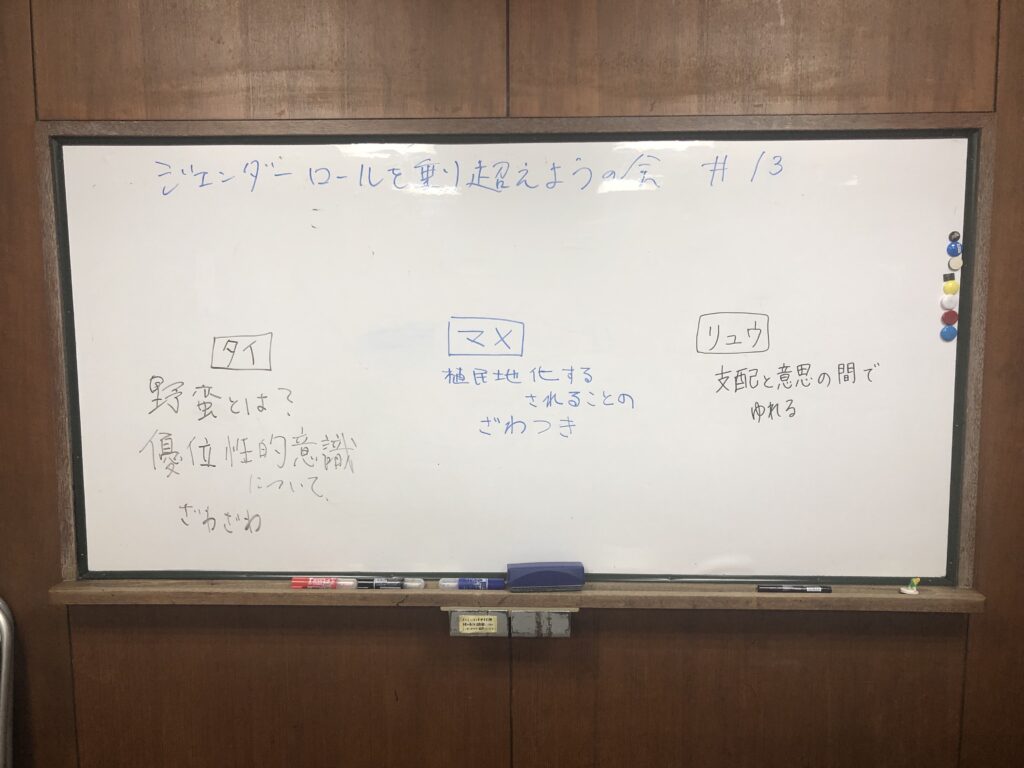 ジェンダーロールを乗り超えようの会 #13
タイ
野蛮とは?
優位性的意識
について、
ざわざわ
マメ
植民地化する
されることの
ざわつき
リュウ
支配と意思の間で
ゆれる